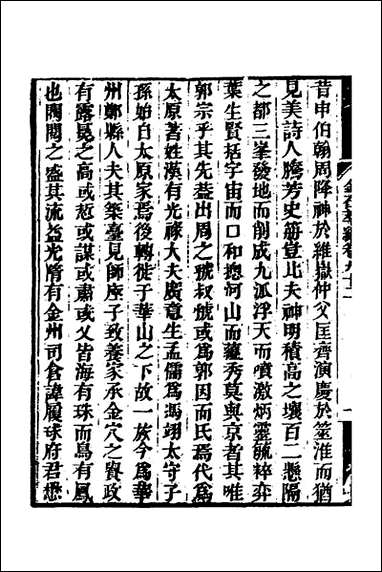 昔申伯翰周降神於維嶽仲父匡齊演慶於筮淮而猶
見美詩人騰芳史冊豈比夫神明積高之壤百二懸隔
之都三峯發地而削成九派浮天而噴激炳靈毓粹弈
葉生賢括宇宙而口和總河山而蘊秀莫與京者其唯
郭宗乎其先葢出周之虢叔虢或為郭因而氏焉代為
太原著姓漢有光祿大夫廣意生孟儒為馮翊太守子
孫始自太原家焉後轉徙于華山之下故一族今為華
州鄭縣人夫其築臺見師座子致養家承金穴之賚政
有露冕之高或恕或謀或肅或乂皆海有珠而鳥有鳳
也閥閱之盛其流益光隋有金州司倉諱履球府君懋
金石萃編卷九十二